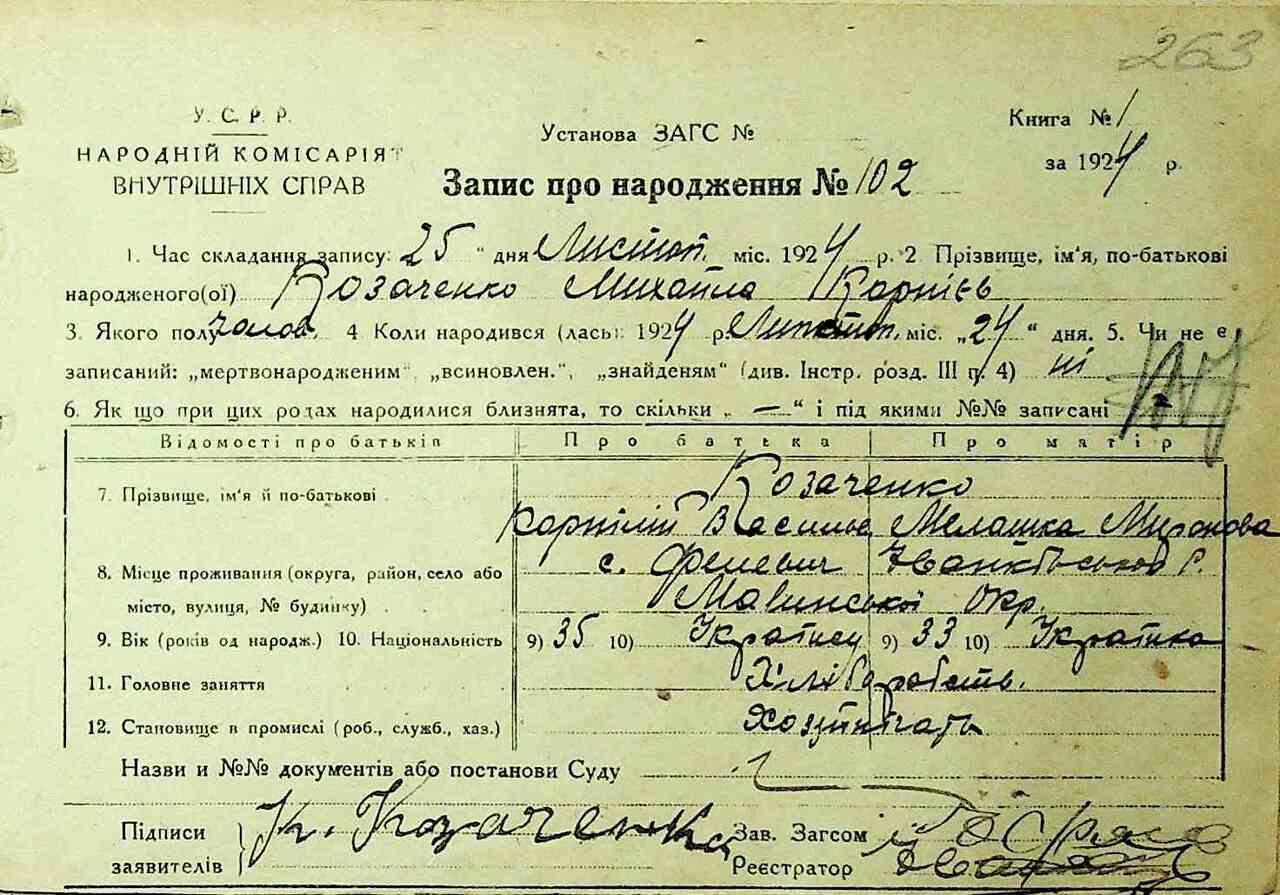 263
У. С. Р. Р.
НАРОДНІЙ КОМІСАРІЯТ
ВНУТРІШНІХ СПРАВ
Установа ЗАГС №
Книга № 1
за 1924 р.
Запис про народження № 102
1. Час складання запису: 25 " дня Листоп. міс. 1924 р. 2 Прізвище, ім'я, по-батькові
народженого(ої) Козаченко Михайла Корнієв
3. Якого полу чолов. 4 Коли народився (лась): 1924 р. Листоп. міс. „24" дня. 5. Чи не є
записаний: „мертвонародженим", „всиновлен.", „знайденям" (див. Інстр. розд. III п. 4) ні
6. Як що при цих родах народилися близнята, то скільки „ — " і під якими №№ записані
Відомості про батьків Про батька Про матір
7. Прізвище, ім'я й по-батькові Козаченко
Корнілій Васильв Мелашка Миронова
8. Місце проживання (округа, район, село або с. Феневич Іванківського Р.
місто, вулиця, № будинку) Малинської Окр.
9. Вік (років од народж.) 10. Національність 9) 35 10) Українец 9) 33 10) Українка
11. Головне заняття Хліборобств.
12. Становище в промислі (роб., служб., хаз.)
Назви и №№ документів або постанови Суду
Підписи К. Козаченко Зав. Загсом
заявителів Реєстратор